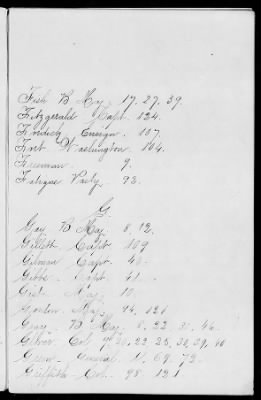 Fish B Maj. 17. 27. 39.
Fitzgerald Capt. 124.
Fordick Ensign. 107.
Fort Washington. 104.
Freeman. 9.
Fatigue Party. 93.
G.
Gay B Maj. 8. 12.
Gillett Capt 109
Gilman Capt. 40.
Gibbs. Capt. 41.
Maj. 10.
Maj. 94. 121
Gray. B Maj. 8. 22. 31. 46.
Col. 20. 23. 25. 30. 39. 40
Green. General 11. 69. 72.
Griffith Col. 98. 121